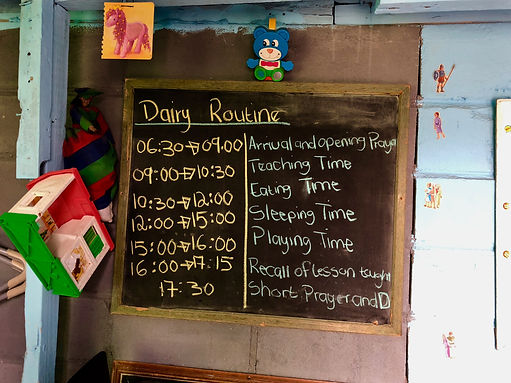 Dairy Routine
06:30→09:00 Arrival and opening Praya
09:00→10:30 Teaching Time
10:30→12:00 Eating Time
12:00→15:00 Sleeping Time
15:00→16:00 Playing Time
16:00→17:15 Recall of lesson taught
17:30 Short Prayer and D